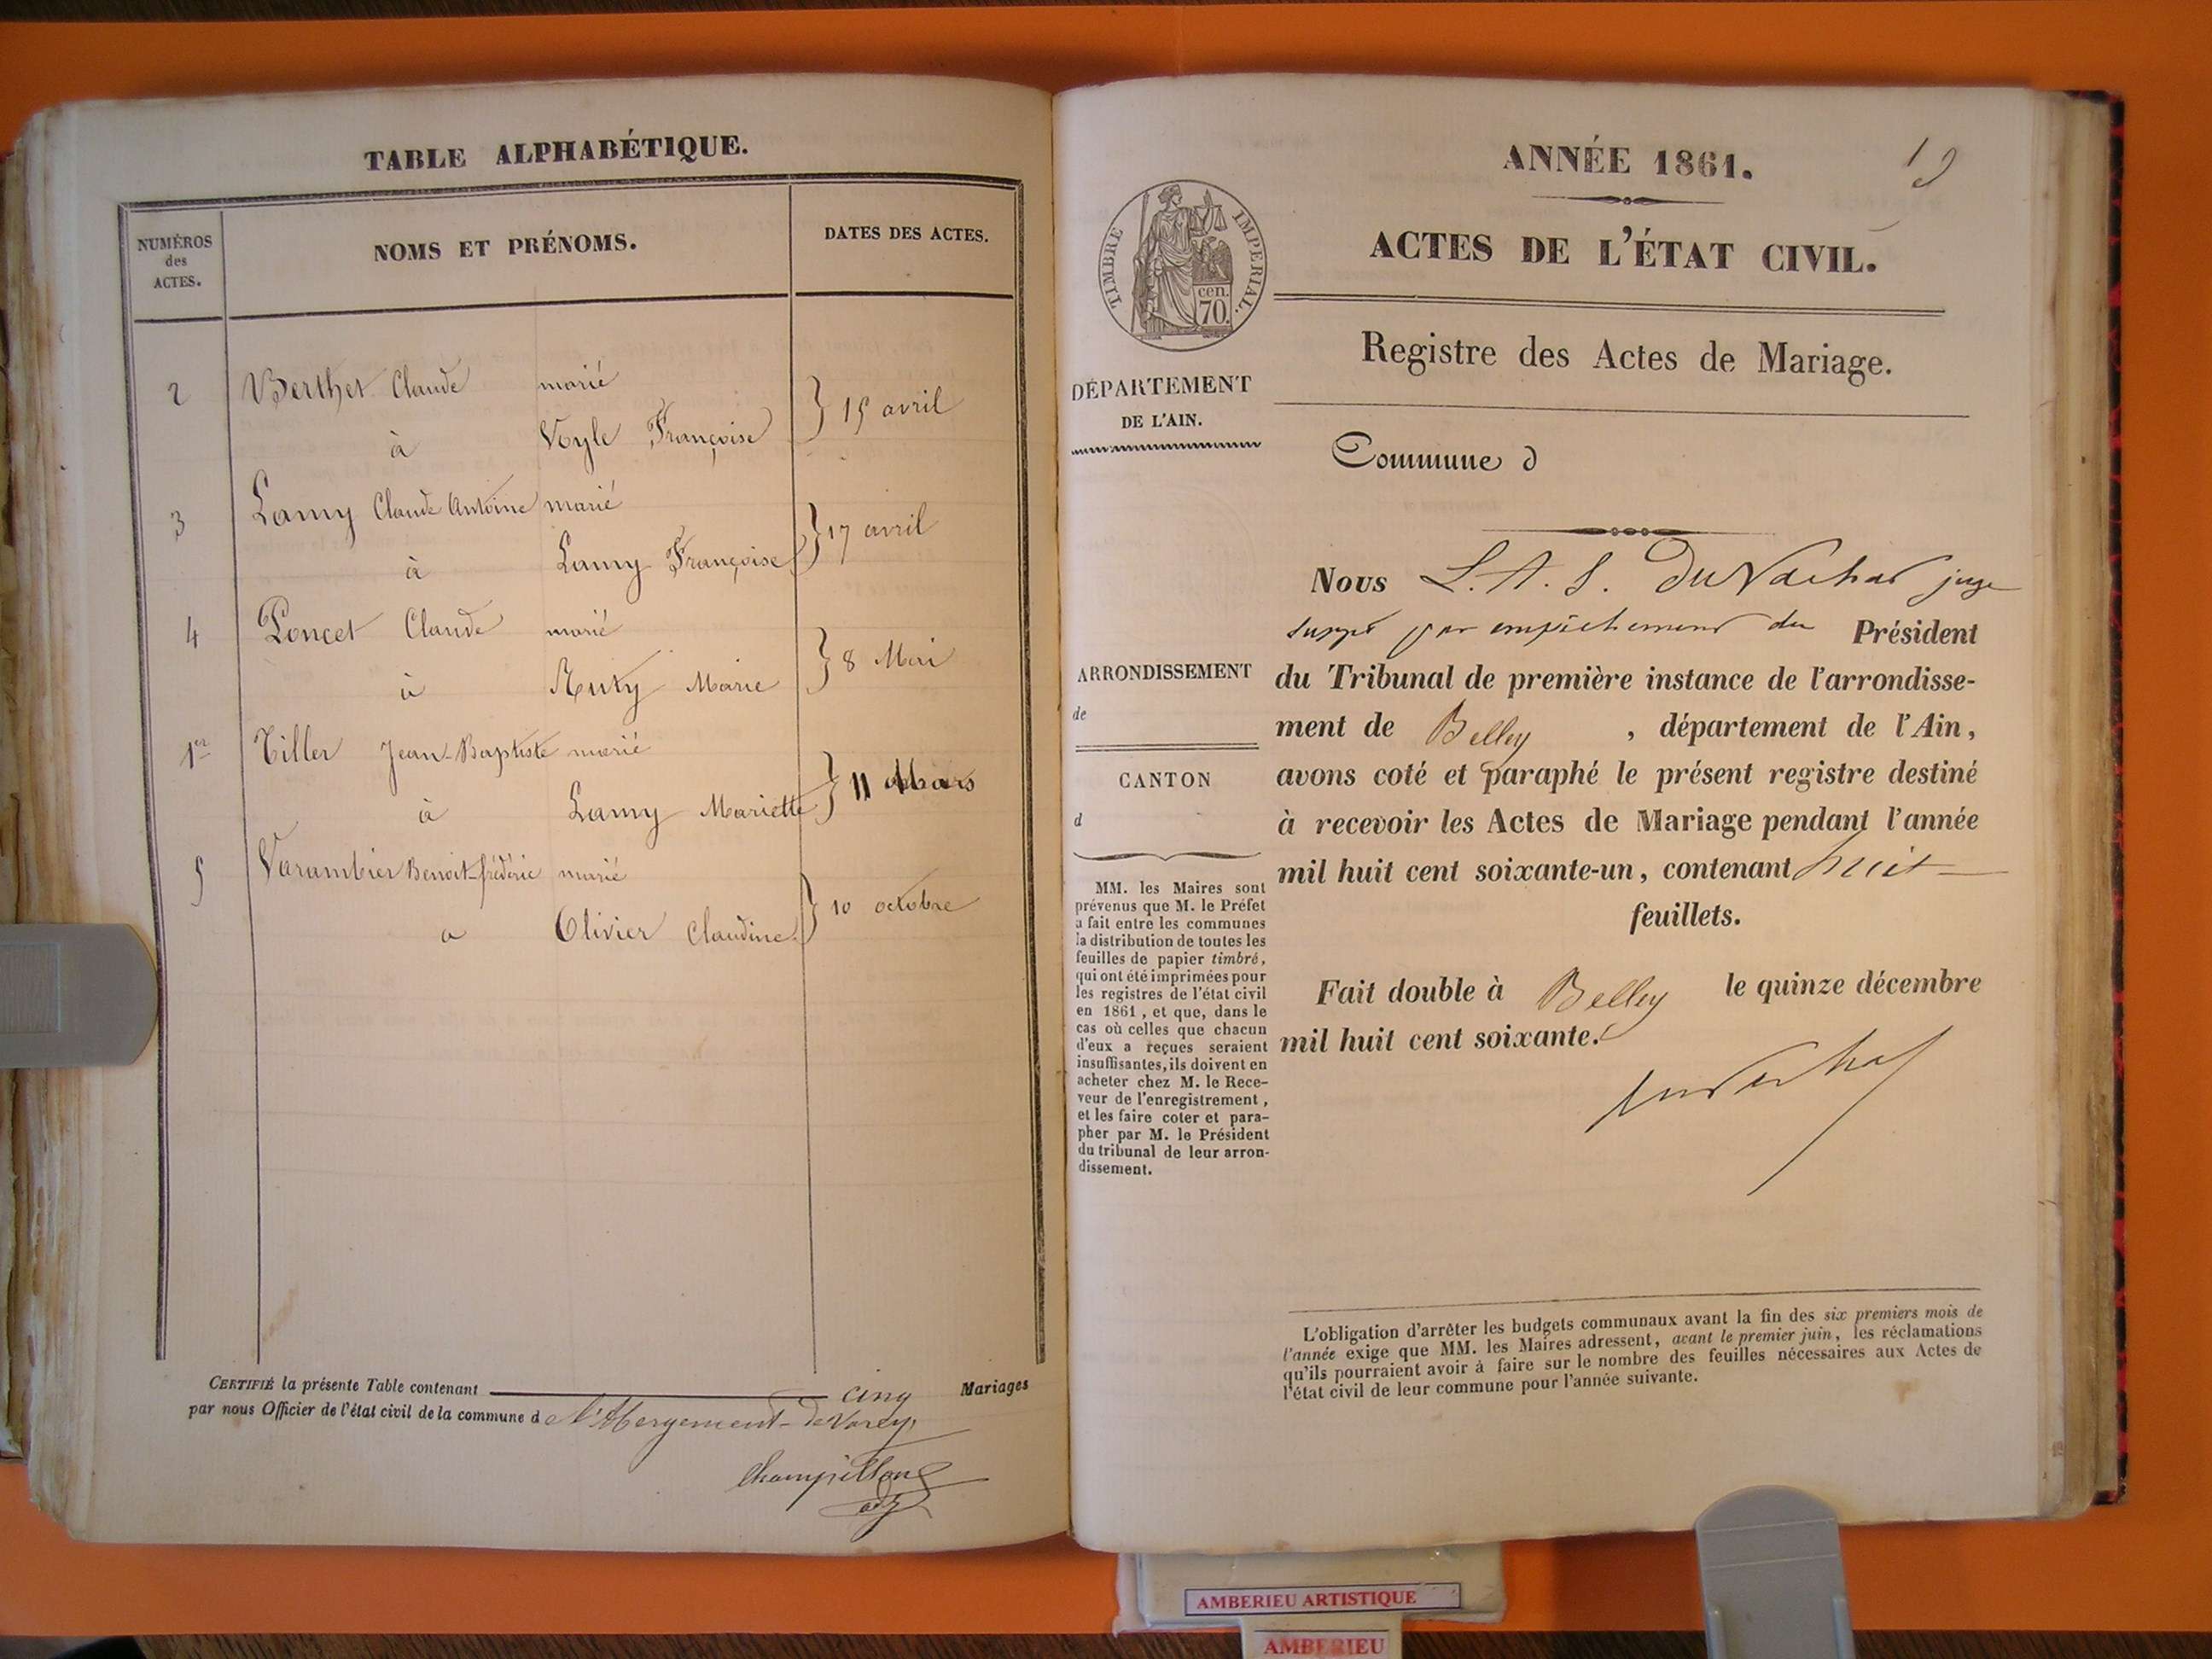 TABLE ALPHABÉTIQUE.
NUMÉROS
des
ACTES.
NOMS ET PRÉNOMS.
DATES DES ACTES.
2 Berthet Claude marié
à Voyle Françoise } 15 avril
3 Lamy Claude Antoine marié
à Lamy Françoise } 17 avril
4 Poncet Claude marié
à Marie } 8 Mai
1er Tiller Jean-Baptiste marié
à Lamy Mariette } 11 Mars
5 Varambier Benoit-frédéric marié
a Olivier Claudine } 10 octobre
CERTIFIÉ la présente Table contenant cinq Mariages
par nous Officier de l'état civil de la commune d l'Abergement-de Varey
Champillon
adj
19
ANNÉE 1861.
ACTES DE L'ÉTAT CIVIL.
TIMBRE IMPERIAL.
cen.
70.
Registre des Actes de Mariage.
DÉPARTEMENT
DE L'AIN.
Commune d
Nous L. A. S. juge
supp par empêchement du Président
du Tribunal de première instance de l'arrondisse-
ment de Belley , département de l'Ain,
avons coté et paraphé le présent registre destiné
à recevoir les Actes de Mariage pendant l'année
mil huit cent soixante-un, contenant huit
feuillets.
Fait double à Belley le quinze décembre
mil huit cent soixante.
ARRONDISSEMENT
de
CANTON
d
MM. les Maires sont
prévenus que M. le Préfet
a fait entre les communes
la distribution de toutes les
feuilles de papier timbré,
qui ont été imprimées pour
les registres de l'état civil
en 1861, et que, dans le
cas où celles que chacun
d'eux a reçues seraient
insuffisantes, ils doivent en
acheter chez M. le Rece-
veur de l'enregistrement,
et les faire coter et para-
pher par M. le Président
du tribunal de leur arron-
dissement.
L'obligation d'arrêter les budgets communaux avant la fin des six premiers mois de
l'année exige que MM. les Maires adressent, avant le premier juin, les réclamations
qu'ils pourraient avoir à faire sur le nombre des feuilles nécessaires aux Actes de
l'état civil de leur commune pour l'année suivante.
AMBERIEU ARTISTIQUE
AMBERIEU